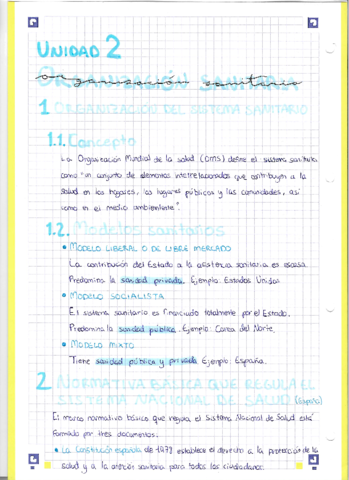 UNIDAD 2
ORGANIZACIÓN SANITARIA
organización sanitaria
1 ORGANIZACIÓN DEL SISTEMA SANITARIO
1.1. Concepto
La Organización Mundial de la salud (OMS) define el sistema sanitario
como "un conjunto de elementos interrelacionados que contribuyen a la
salud en los hogares, los lugares públicos y las comunidades, así
como en el medio ambiente".
1.2. Modelos sanitarios
• MODELO LIBERAL O DE LIBRE MERCADO
La contribución del Estado a la asistencia sanitaria es escasa.
Predomina la sanidad privada. Ejemplo: Estados Unidos
• MODELO SOCIALISTA
El sistema sanitario es financiado totalmente por el Estado.
Predomina la sanidad pública. Ejemplo: Corea del Norte.
• MODELO MIXTO
Tiene sanidad pública y privada. Ejemplo: España.
2 NORMATIVA BÁSICA QUE REGULA EL
SISTEMA NACIONAL DE SALUD (España)
El marco normativo básico que regula el Sistema Nacional de Salud está
formado por tres documentos:
• La Constitución española de 1978 establece el derecho a la protección de la
salud y a la atención sanitaria para todos los ciudadanos.